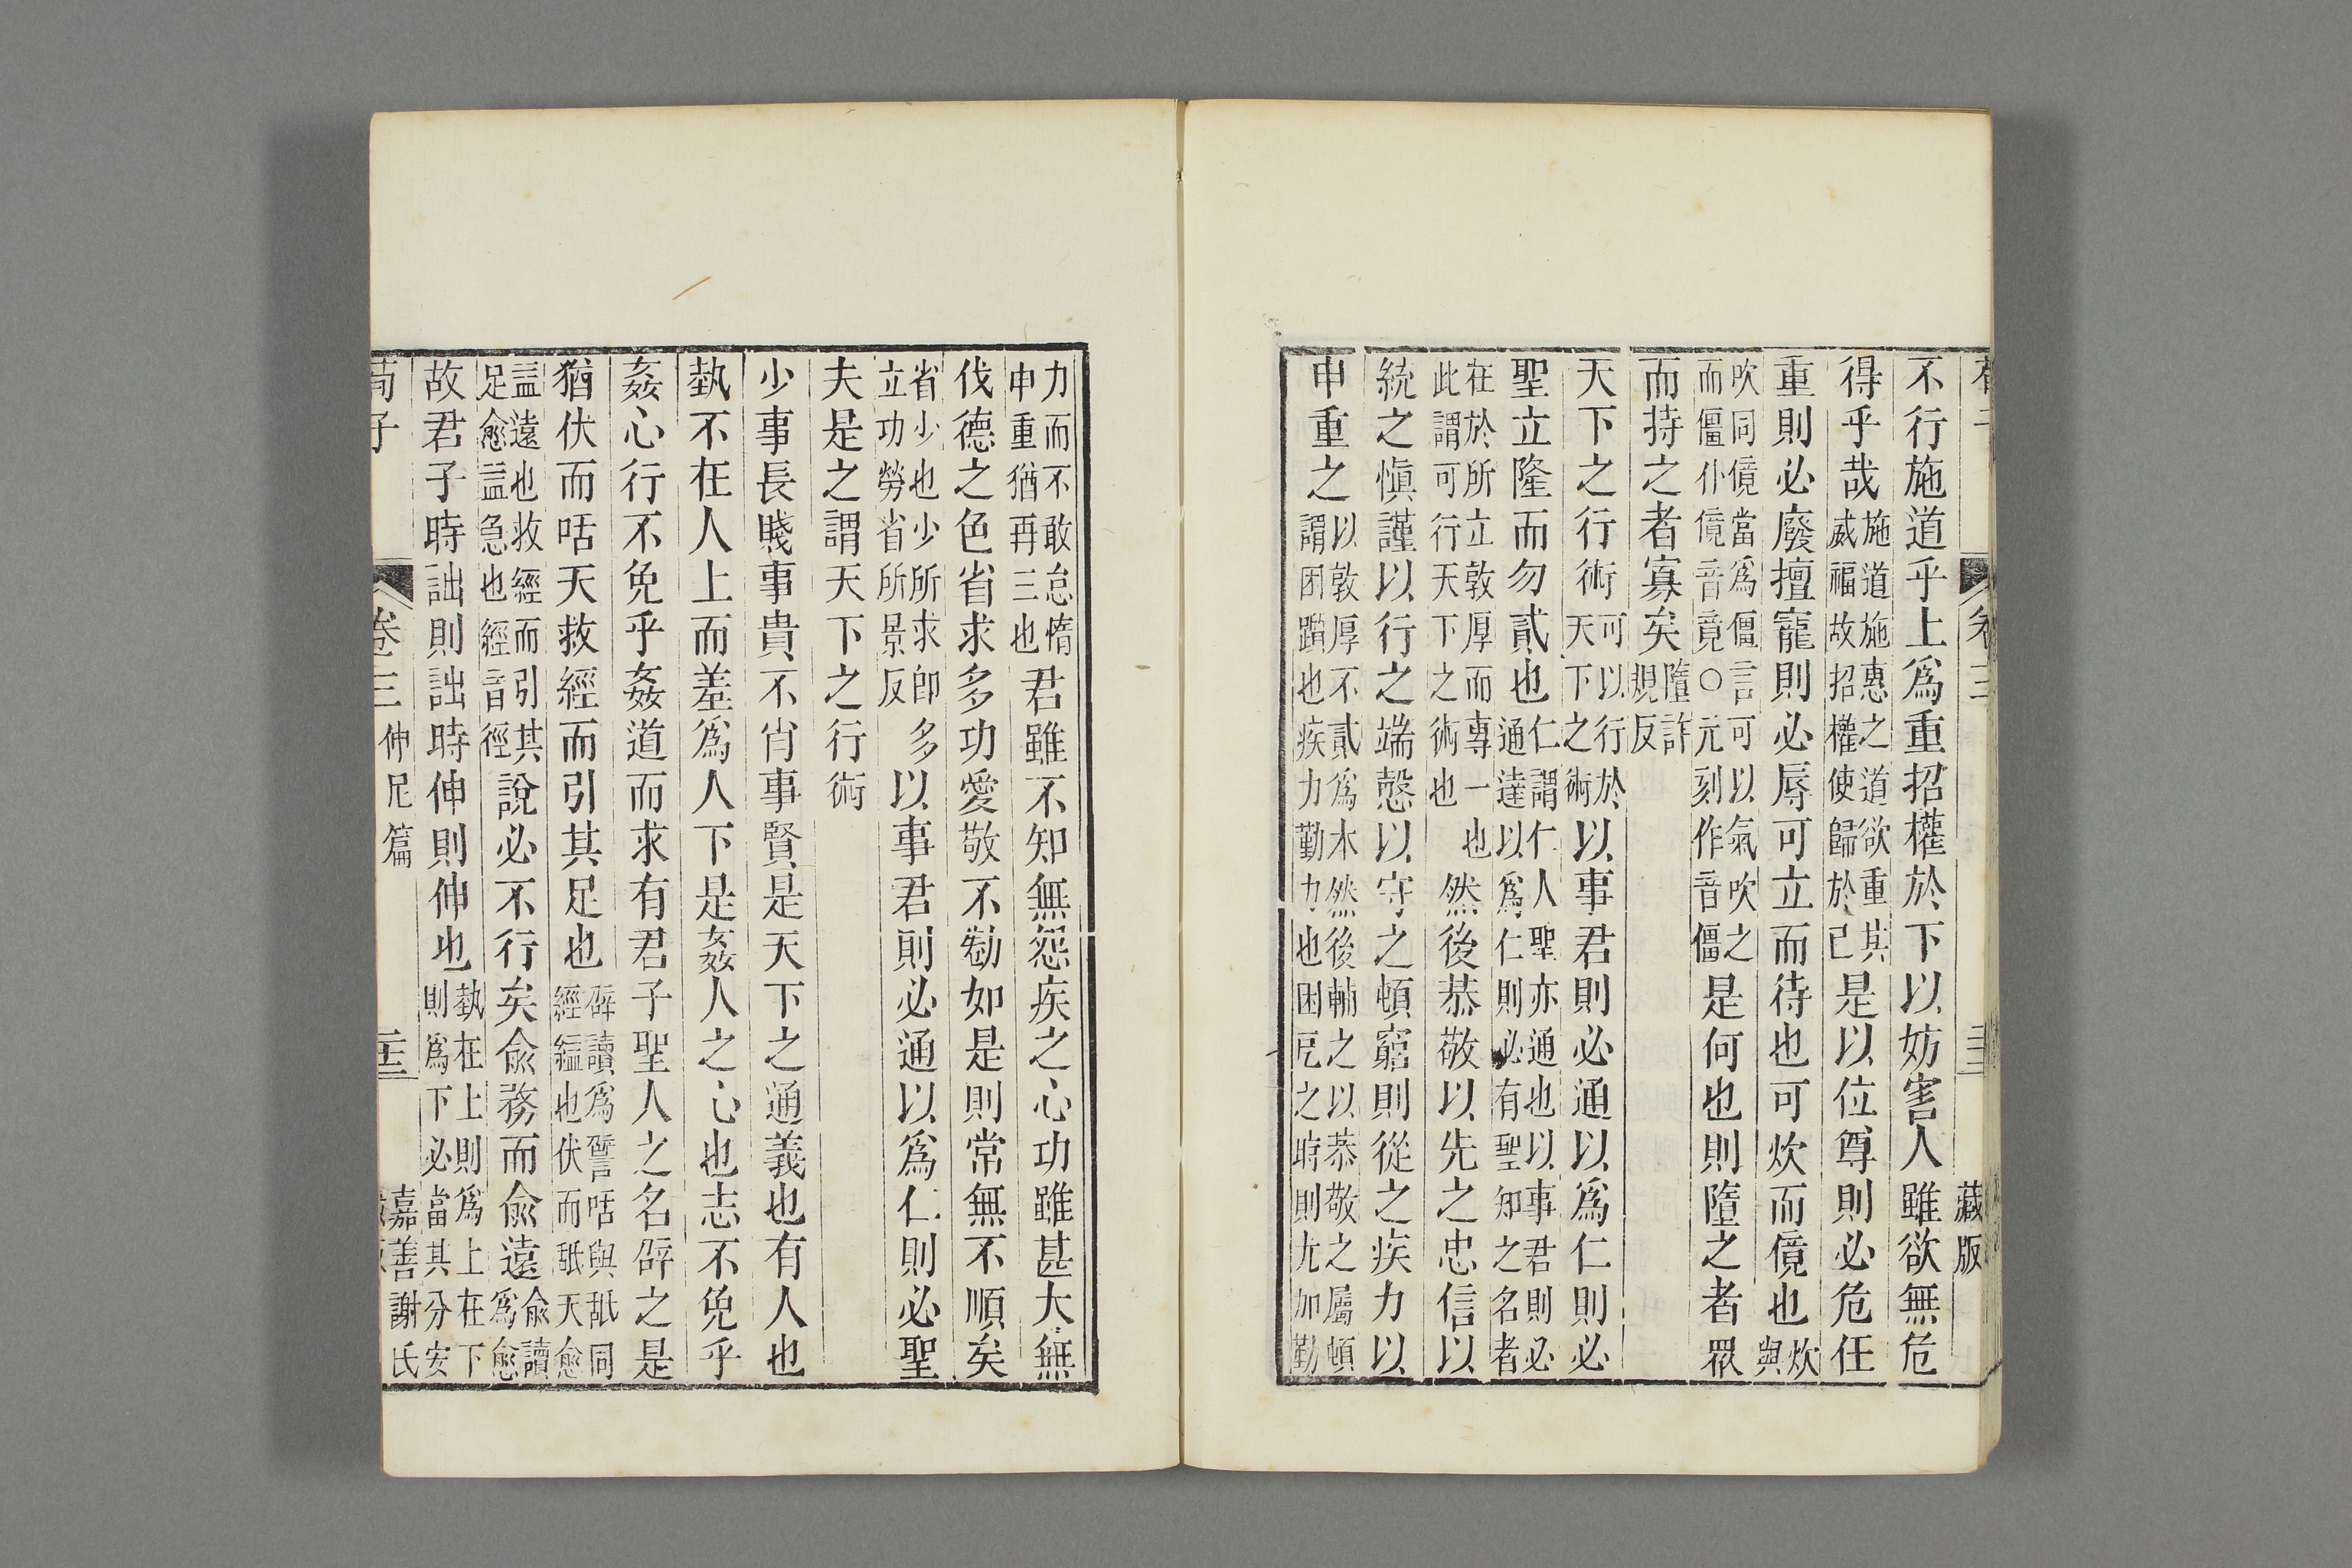 藏版
不行施道乎上爲重招權於下以妨害人雖欲無危
得乎哉施道施惠之道欲重其威福故招權使歸於己是以位尊則必危任
重則必廢擅寵則必辱可立而待也可炊而傹也炊與
吹同傹當爲僵言可以氣吹之而僵仆傹音竟○元刻作音僵是何也則墮之者眾
而持之者寡矣墮許規反
天下之行術可以行於天下之術以事君則必通以爲仁則必
聖立隆而勿貳也仁謂仁人聖亦通也以事君則必通達以爲仁則必有聖知之名者
在於所立敦厚而專一也此謂可行天下之術也然後恭敬以先之忠信以
統之愼謹以行之端愨以守之頓窮則從之疾力以
申重之以敦厚不貳爲本然後輔之以恭敬之屬頓謂困躓也疾力勤力也困戹之時則尤加勤
力而不敢怠惰申重猶再三也君雖不知無怨疾之心功雖甚大無
伐德之色省求多功愛敬不勌如是則常無不順矣
省少也少所求卽多立功勞省所景反以事君則必通以爲仁則必聖
夫是之謂天下之行術
少事長賤事貴不肖事賢是天下之通義也有人也
埶不在人上而羞爲人下是姦人之心也志不免乎
姦心行不免乎姦道而求有君子聖人之名辟之是
猶伏而咶天救經而引其足也辟讀爲譬咶與舐同經縊也伏而舐天愈
益遠也救經而引其足愈益急也經音徑說必不行矣俞務而俞遠俞讀爲愈
故君子時詘則詘時伸則伸也埶在上則爲上在下則爲下必當其分安
荀子 卷三 仲尼篇 二十三 嘉善謝氏